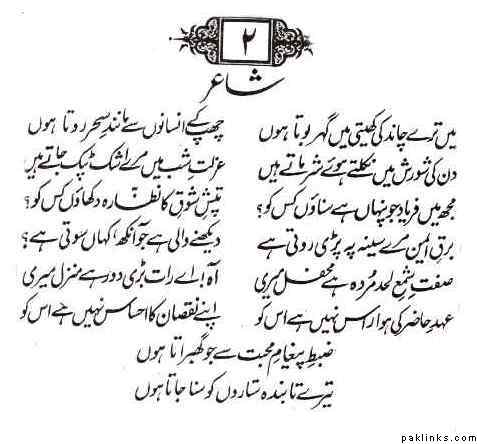 ۲
شاعر
میں ترے چاند کی کھیتی میں گہر بوتا ہوں چھپ کے انسانوں سے مانندِ سحر روتا ہوں
دن کی شورش میں نکلتے ہوئے شرماتے ہیں عزلتِ شب میں مرے اشک ٹپک جاتے ہیں
مجھ میں فریاد جو پنہاں ہے سناؤں کس کو؟ تپشِ شوق کا نظارہ دکھاؤں کس کو؟
برقِ ایمن مرے سینہ پہ پڑی روتی ہے دیکھنے والی ہے جو آنکھ، کہاں سوتی ہے؟
صفتِ شمعِ لحد مُردہ ہے محفل میری آہ! اے رات بڑی دور ہے منزل میری
عہدِ حاضر کی ہوا راس نہیں ہے اس کو اپنے نقصان کا احساس نہیں ہے اس کو
ضبطِ پیغامِ محبت سے جو گھبراتا ہوں
تیرے تابندہ ستاروں کو سنا جاتا ہوں
paklinks.com